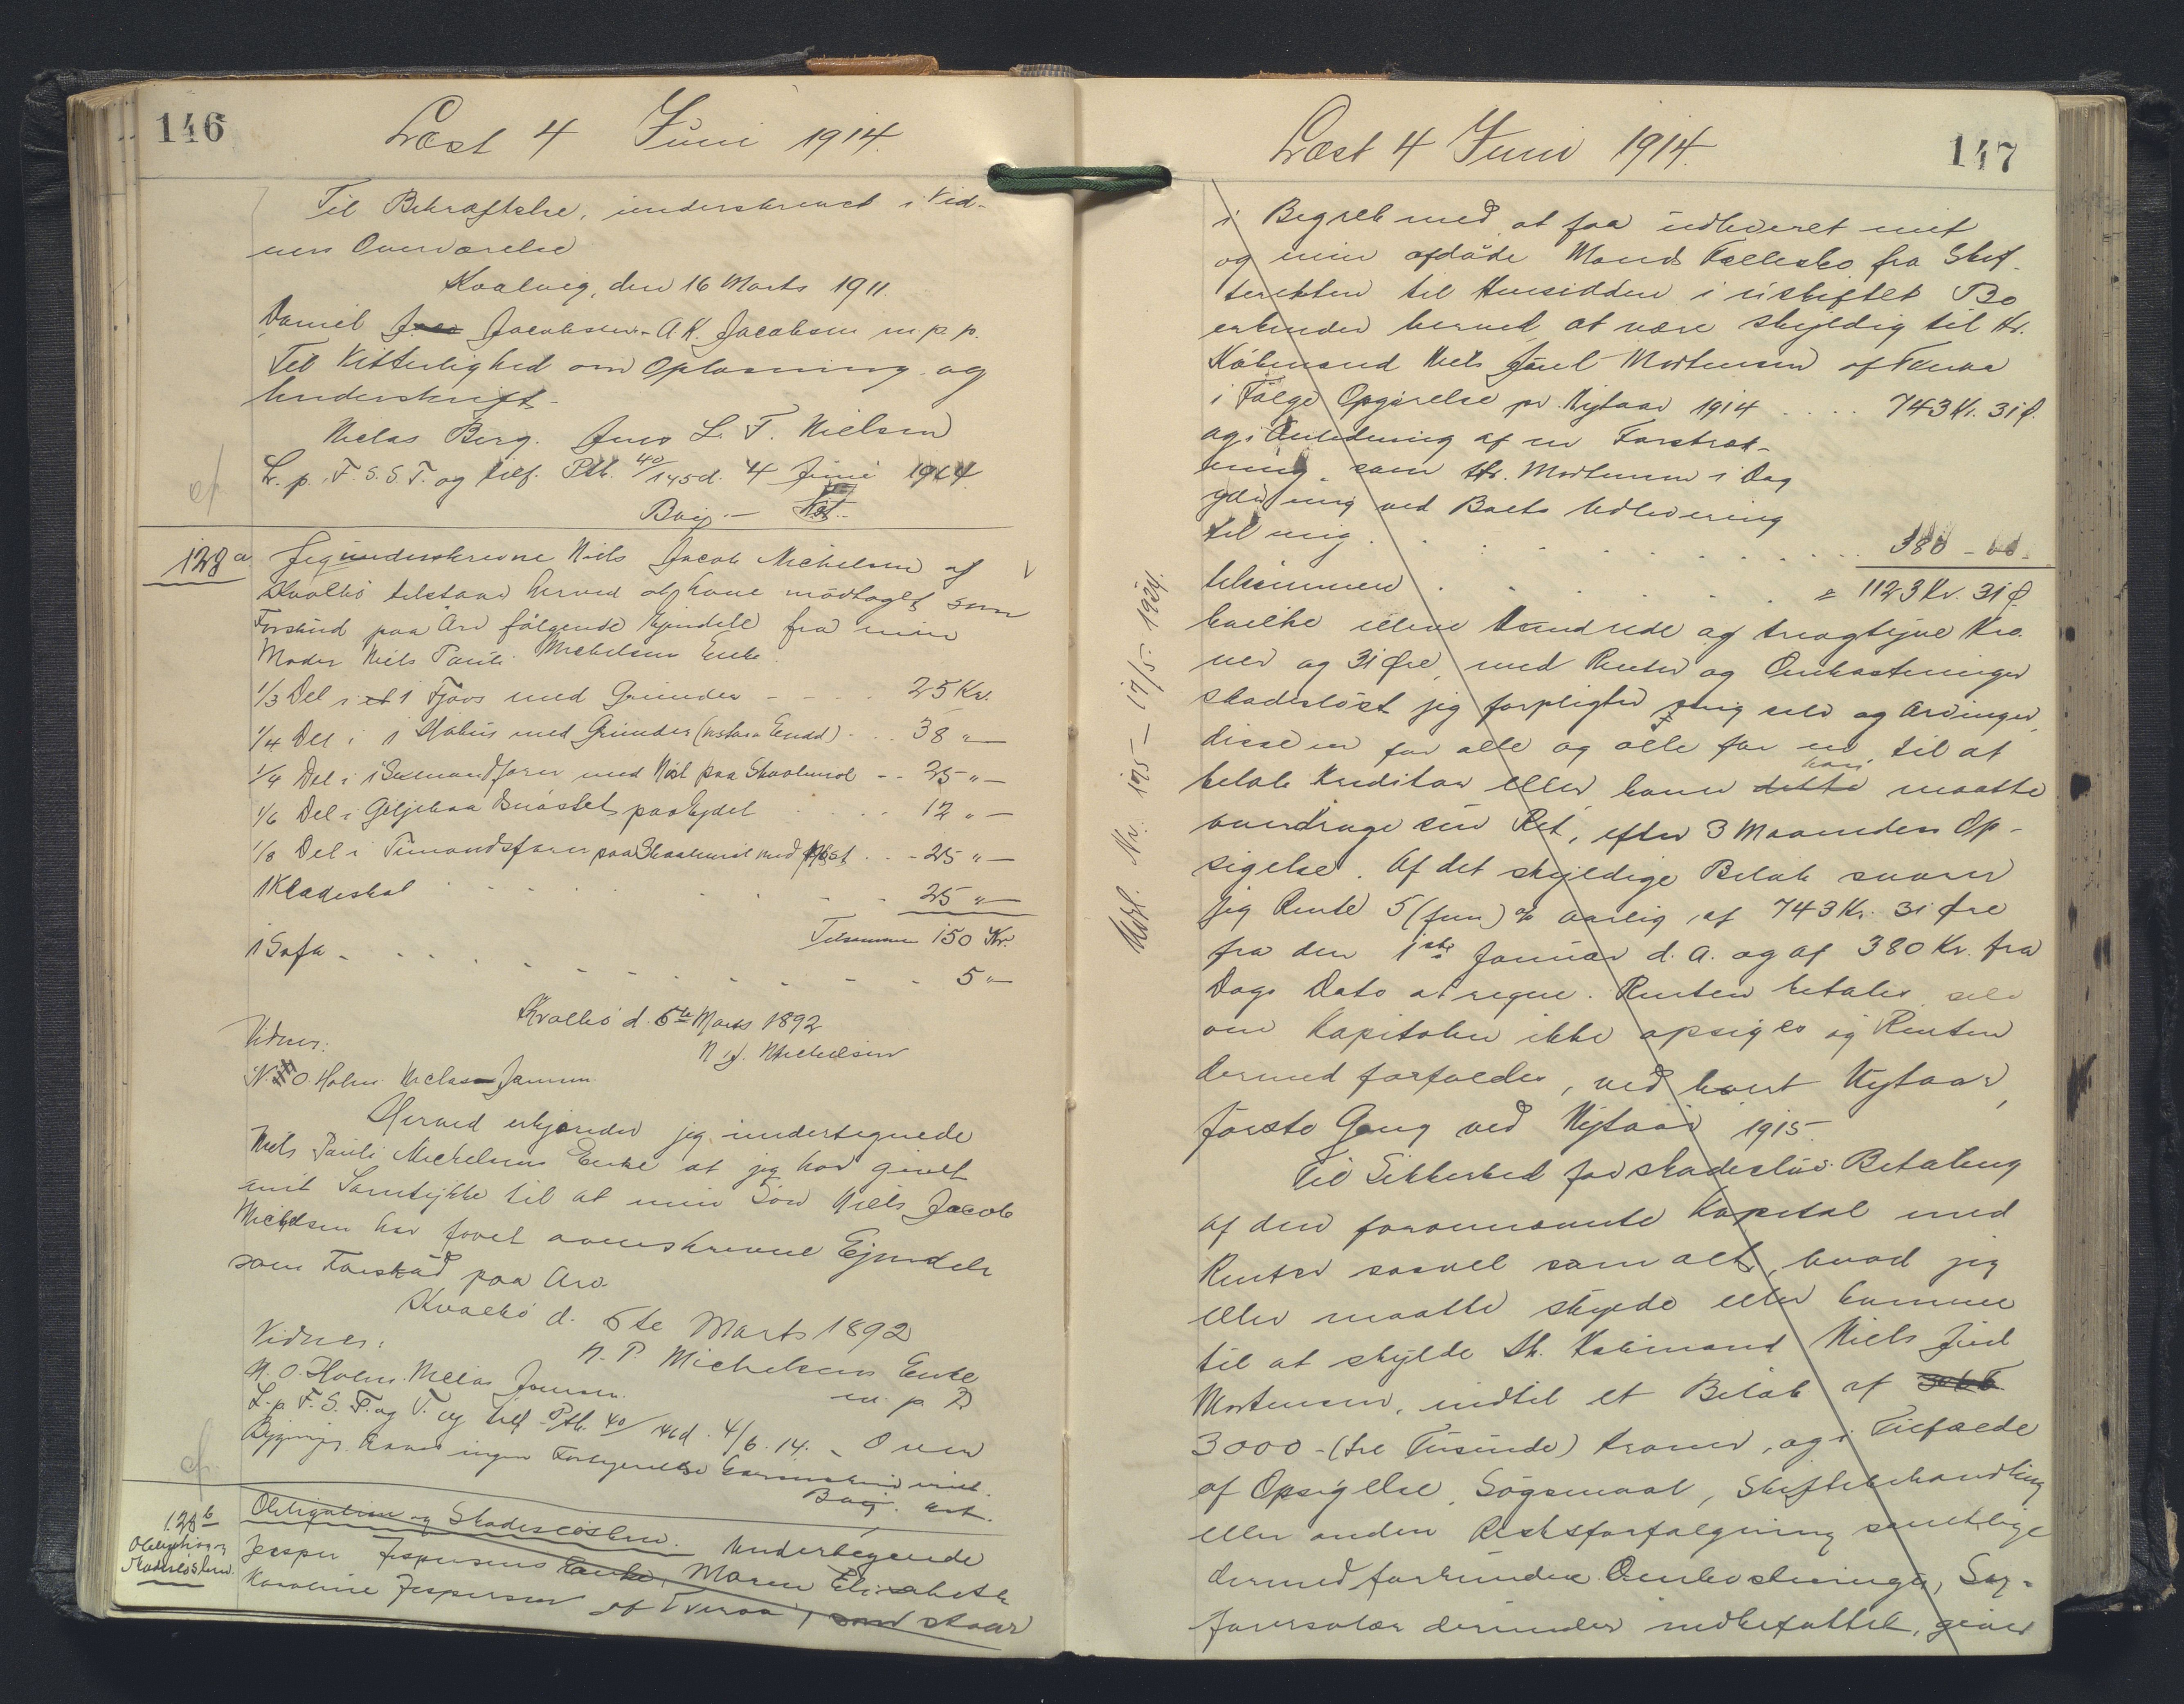 146
Læst 4 Juni 1914.
Til Bekræftelse, underskrevet i Vid-
ners Overværelse
Kvalvig, den 16 Marts 1911.
Daniel Jacobsen - A. K. Jacobsen m. p. p.
Til Vitterlighed om Oplæsning og
Underskrift.
Niclas Berg. Jens L. F. Nielsen
L. p. F. S. S. T. og tilf. Ptb. 40/145d. 4 Juni 1914
128a
Jeg underskrevne Niels Jacob Michelsen af
Kvalbö tilstaar herved at have modtaget som
Forskud paa Arv fölgende Ejendele fra min
Moder Niels Pauli Michelsens Enke.
1/3 Del i et 1 Fjøs med Grunden - - - 25 Kr.
1/4 Del i 1 Hjal med Grunden - - 38 " -
1/4 Del i 1 Sexmandsfarer med Nöst paa -- 25 " -
1/6 Del i . . . 12 " -
1/8 Del i Timandsfarer paa med Nöst . . - 25 " -
1 25 " -
Tilsammen 150 Kr.
1 Sofa - 5 " -
Kvalbö d. 5te Marts 1892
Vidner: N. J. Michelsen
N. O. Holm Niclas Joensen
Herved erkjender jeg undertegnede
Niels Pauli Michelsens Enke at jeg har givet
mit Samtykke til at min Sön Niels Jacob
Michelsen har faaet ovenskrevne Ejendele
som Forskud paa Arv.
Kvalbö d. 5te Marts 1892
Vidner: N. P. Michelsens Enke
N. O. Holm. Niclas Joensen. m. p. P
L. p. F. S. F. og T. og tilf. Ptb. 40/146d. 4/6. 14. - Oven
128b
Obligation og
Skadeslösbrev.
Obligation og Skadeslösbrev. Undertegnede
Jesper Jespersens Enke, Maren Elisabeth
Karoline Jespersen af Tveraa, som staar
147
Læst 4 Juni 1914.
i Begreb med at faa udleveret mit
og min afdöde Mands Fællesbo fra Skif-
teretten til Hensidden i uskiftet Bo
erkender herved at være skyldig til Hr.
Köbmand Niels Juul Mortensen af Tveraa
i Fölge Opgörelse pr. Nytaar 1914 . . . . 743 Kr. 31 Ø.
og i Anledning af en Forstræk-
ning som Hr. Mortensen i Dag
yder mig ved Boets Udlevering
til mig . . . . 380 -
tilsammen . . . . = 1123 Kr. 31 Ø.
hvilke elleve Hundrede og treogtyve Kro-
ner og 31 Øre, med Renter og Omkostninger
skadeslöst jeg forpligter mig selv og Arvinger,
disse en for alle og alle for en, til at
betale Kreditor eller hvem dette han maatte
overdrage sin Ret, efter 3 Maaneders Op-
sigelse. Af det skyldige Belöb svarer
jeg Rente 5 (fem) % aarlig, af 743 Kr. 31 Øre
fra den 1ste Januar d. A. og af 380 Kr. fra
Dags Dato at regne. Renten betales selv
om Kapitalen ikke opsiges og Renten
dermed forfalder, ved hvert Nytaar,
förste Gang ved Nytaar 1915.
Til Sikkerhed for skadeslös Betaling
af den forannævnte Kapital med
Renter saavel som alt, hvad jeg
eller maatte skylde eller komme
til at skylde Hr. Köbmand Niels Juul
Mortensen, indtil et Belöb af
3000 - (tre Tusinde) Kroner, og i Tilfælde
af Opsigelse, Sögsmaal, Skiftebehandling
eller anden Retsforfölgning samtlige
dermed forbundne Omkostninger, Sag-
förersalær derunder indbefattet, giver
Nr. 195 - 17/5. 1924.